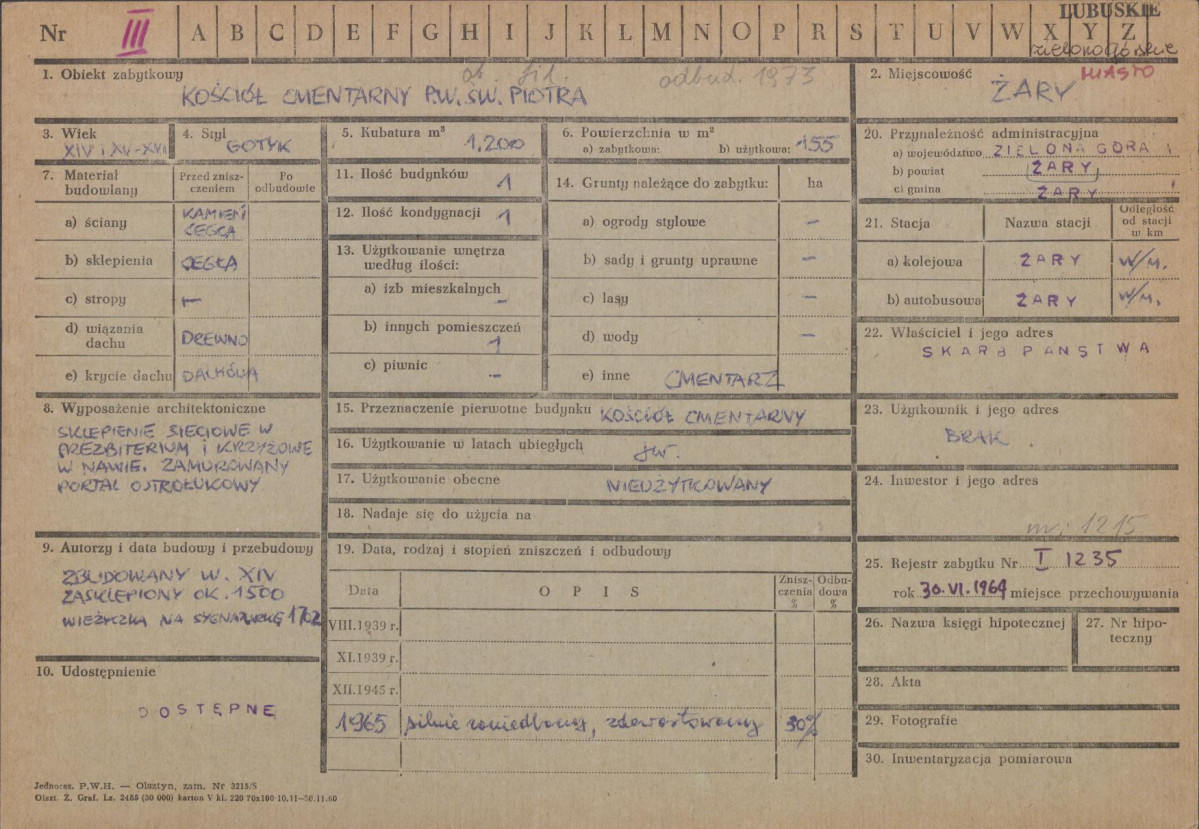 LUBUSKIE
Nr III A B C D E F G H I J K L M N O P R S T U V W X Y Z
zielonogórskie
1. Obiekt zabytkowy
ob. fil. odbud. 1973
KOŚCIÓŁ CMENTARNY P.W. ŚW. PIOTRA
2. Miejscowość MIASTO
ŻARY
3. Wiek
XIV i XV-XVII
4. Styl
GOTYK
5. Kubatura m³
1.200
6. Powierzchnia w m²
a) zabytkowa: b) użytkowa: 155
20. Przynależność administracyjna
a) województwo ZIELONA GÓRA
b) powiat ŻARY
c) gmina ŻARY
7. Materiał budowlany
Przed zniszczeniem
Po odbudowie
a) ściany KAMIEŃ CEGŁA
b) sklepienia CEGŁA
c) stropy —
d) wiązania dachu DREWNO
e) krycie dachu DACHÓWKA
11. Ilość budynków 1
12. Ilość kondygnacji 1
13. Użytkowanie wnętrza
według ilości:
a) izb mieszkalnych —
b) innych pomieszczeń
1
c) piwnic —
14. Grunty należące do zabytku: ha
a) ogrody stylowe —
b) sady i grunty uprawne —
c) lasy —
d) wody —
e) inne CMENTARZ
21. Stacja
Nazwa stacji
Odległość
od stacji
w km
a) kolejowa ŻARY W/M.
b) autobusowa ŻARY W/M.
22. Właściciel i jego adres
SKARB PAŃSTWA
8. Wyposażenie architektoniczne
SKLEPIENIE SIECIOWE W
PREZBITERIUM I KRZYŻOWE
W NAWIE. ZAMUROWANY
PORTAL OSTROŁUKOWY
15. Przeznaczenie pierwotne budynku KOŚCIÓŁ CMENTARNY
16. Użytkowanie w latach ubiegłych jw.
17. Użytkowanie obecne NIEUŻYTKOWANY
18. Nadaje się do użycia na
23. Użytkownik i jego adres
BRAK
24. Inwestor i jego adres
nr: 1215
9. Autorzy i data budowy i przebudowy
ZBUDOWANY W. XIV
ZASKLEPIONY OK. 1500
WIEŻYCZKA NA SYGNATURKĘ 1702
19. Data, rodzaj i stopień zniszczeń i odbudowy
Data
O P I S
Zniszczenia %
Odbudowa %
VIII.1939 r.
XI.1939 r.
XII.1945 r.
1965 silnie zaniedbany, zdewastowany 30%
25. Rejestr zabytku Nr I 1235
rok 30.VI.1964 miejsce przechowywania
26. Nazwa księgi hipotecznej
27. Nr hipoteczny
10. Udostępnienie
DOSTĘPNE
28. Akta
29. Fotografie
30. Inwentaryzacja pomiarowa
Jednocz. P.W.H. — Olsztyn, zam. Nr 3215/S
Olszt. Z. Graf. Lz. 2485 (30 000) karton V kl. 220 70x100 10.11—30.11.60